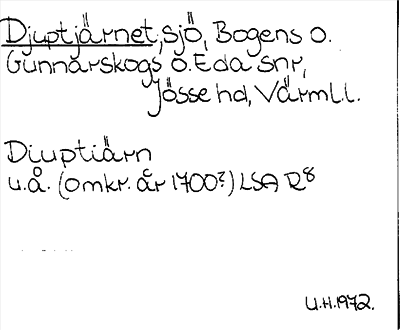 Djuptjärnet, sjö, Bogens o.
Gunnarskogs o. Eda snr,
Jösse hd, Värml.l.
Diuptiärn
u.å. (omkr. år 1700?) LSA R8
U.H. 1972.